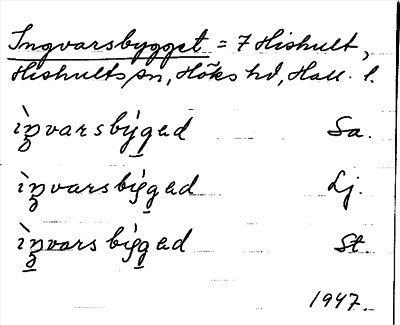 Ingvarsbygget = 7 Hishult,
Hishults sn, Höks hd, Hall. l.
ìŋvarsbýgəd Sa.
ìŋvarsbýgəd Lj.
ìŋvarsbýgəd St.
1947.